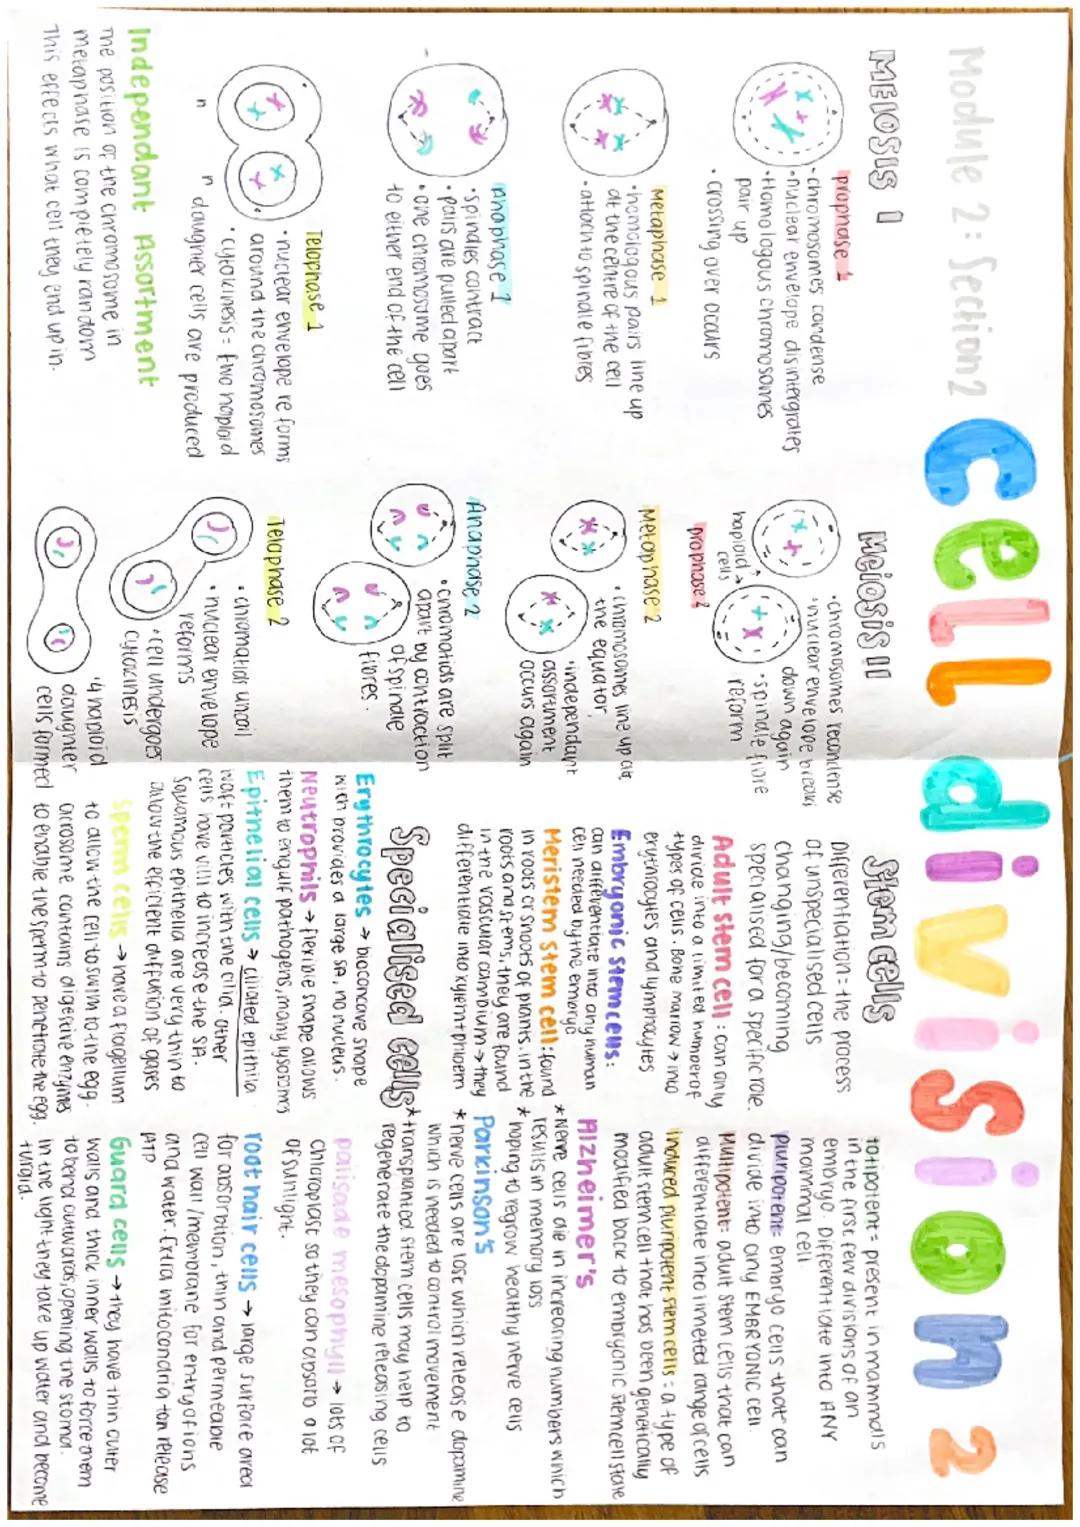 Module 2: Section 2
Cell division 2
MEIOSIS 1
prophase 1
• chromosomes condense
• nuclear envelope disintergrates
• Homologous chromosomes
pair up
• crossing over occurs
Metaphase 1
• homologous pairs line up
at the centre of the cell
• attach to spindle fibres
Anaphase 1
• spindles contract
• pairs are pulled apart
• one chromosome goes
to either end of the cell
Telophase 1
• nuclear envelope re forms
around the chromosomes
• cytokinesis = two haploid
daughter cells are produced
n
n
Independant Assortment
The position of the chromosome in
metaphase is completely random
This effects what cell they end up in.
Meiosis II
• chromosomes recondense
• nuclear envelope breaks
down again
• spindle fibre
reform
haploid
cells
prophase 2
Metaphase 2
• chromosomes line up at
the equator,
• independant
assortment
occurs again
Anaphase 2
• chromatids are split
apart by contraction
of spindle
fibres.
Telaphase 2
• chromatids uncoil
• nuclear envelope
reforms
• cell undergoes
cytokinesis
• 4 haploid
daughter
cells formed
Stem cells
Differentiation = the process
of unspecialised cells
changing/becoming
specialised for a specific role.
Adult stem cell: can only
divide into a limited number of
types of cells. Bone marrow → into
erythrocytes and lymphocytes
Embryonic stem cells:
can differentiate into any human
cell needed by the embryo
Meristem stem cell: found
in roots or shoots of plants. in the
roots and stems, they are found
in the vascular cambium → they
differentiate into xylem + phloem
Specialised cells
Erythrocytes → bioconcave shape
wich provides a large SA, no nucleus.
Neutrophils → flexible shape allows
them to engulf pathogens, many lysosomes
Epithelial cells → ciliated epithilia
waft particles with the cilia. Other
cells have villi to increase the SA.
Squamous epithelia are very thin to
allow the efficient diffusion of gases
Sperm cells → have a flagellum
to allow the cell to swim to the egg.
acrosome contains digestive enzymes
to enable the sperm to penetrate the egg.
totipotent = present in mammals
in the first few divisions of an
embryo. Differentiate into ANY
mammal cell.
pluripotent = embryo cells that can
divide into any EMBRYONIC cell.
Multipotent = adult stem cells that can
differentiate into limeted range of cells
induced pluripotent stem cells: a type of
adult stem cell that has been genetically
modified back to embryonic stem cell state
Alzheimer's
* Nerve cells die in increasing numbers which
results in memory loss
* hoping to regrow healthy nerve cells
Parkinson's
* nerve cells are lost which release dopamine
which is needed to control movement
* transplanted stem cells may help to
regenerate the dopamine releasing cells
palisade mesophyll → lots of
chloroplast so they can absorb a lot
of sunlight.
root hair cells → large surface area
for absorbtion, thin and permeable
cell wall / membrane for entry of ions
and water. Extra mitocondria ton release
ATP
Guard cells → they have thin outer
walls and thick inner walls to force them
to bend outwards, opening the stoma.
In the light they take up water and become
turgid.